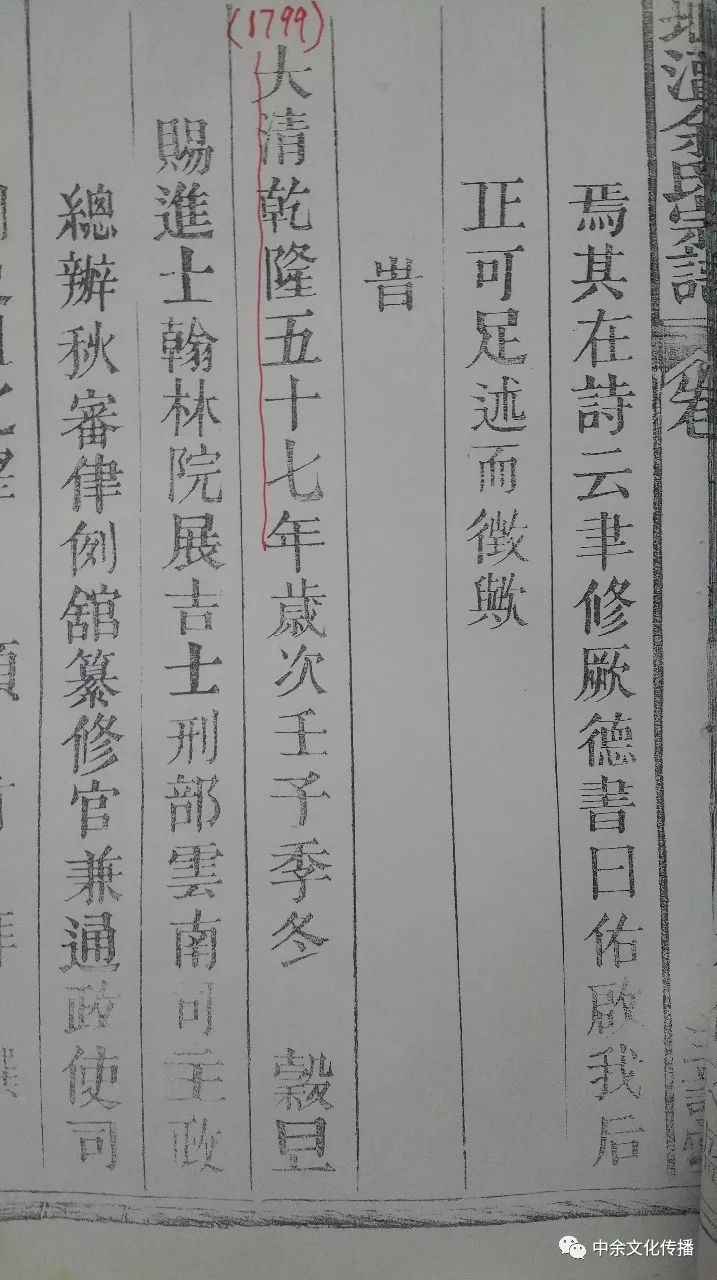 余氏宗譜
焉其在詩云聿修厥德書曰佑啟我后
正可足述而徴歟
旹
(1799)
大清乾隆五十七年歲次壬子季冬 穀旦
賜進士翰林院展吉士刑部雲南司主政
總辦秋審律例舘纂修官兼通政使司
中余文化传播